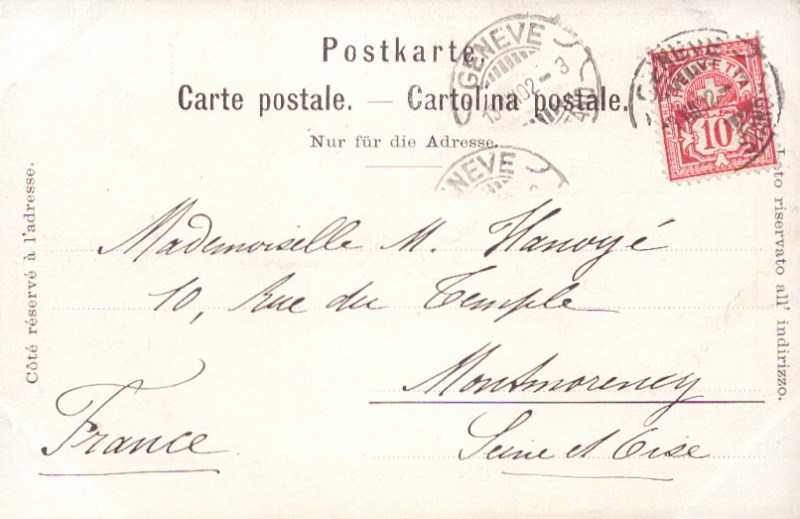 Postkarte.
Carte postale. — Cartolina postale.
Nur für die Adresse.
GENEVE
02-3
GENEVE
HELVETIA
10
GENEVE
Côté réservé à l'adresse.
Lato riservato all' indirizzo.
Mademoiselle M. Hanoyé
10, Rue du Temple
Montmorency
Seine et Oise
France